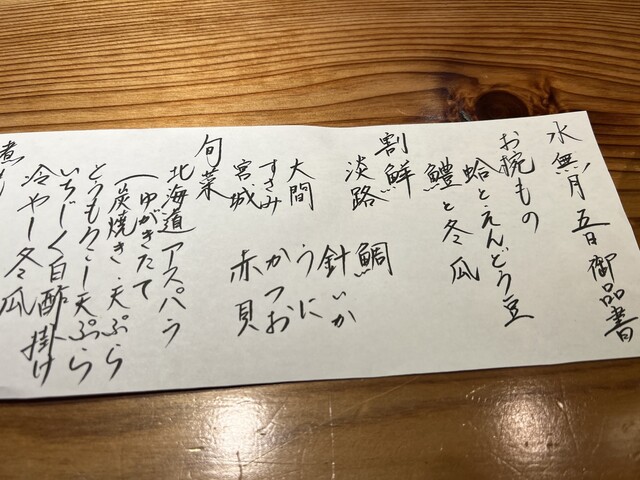 水無月五日御品書
お椀もの
蛤とえんどう豆
鱧と冬瓜
割鮮
淡路 鯛
針いか
大間 うに
すさみ かつお
宮城 赤貝
旬菜
北海道アスパラ
(ゆがきたて
炭焼き・天ぷら
とうもろこし天ぷら
いちじく白酢掛け
冷やし冬瓜
煮も